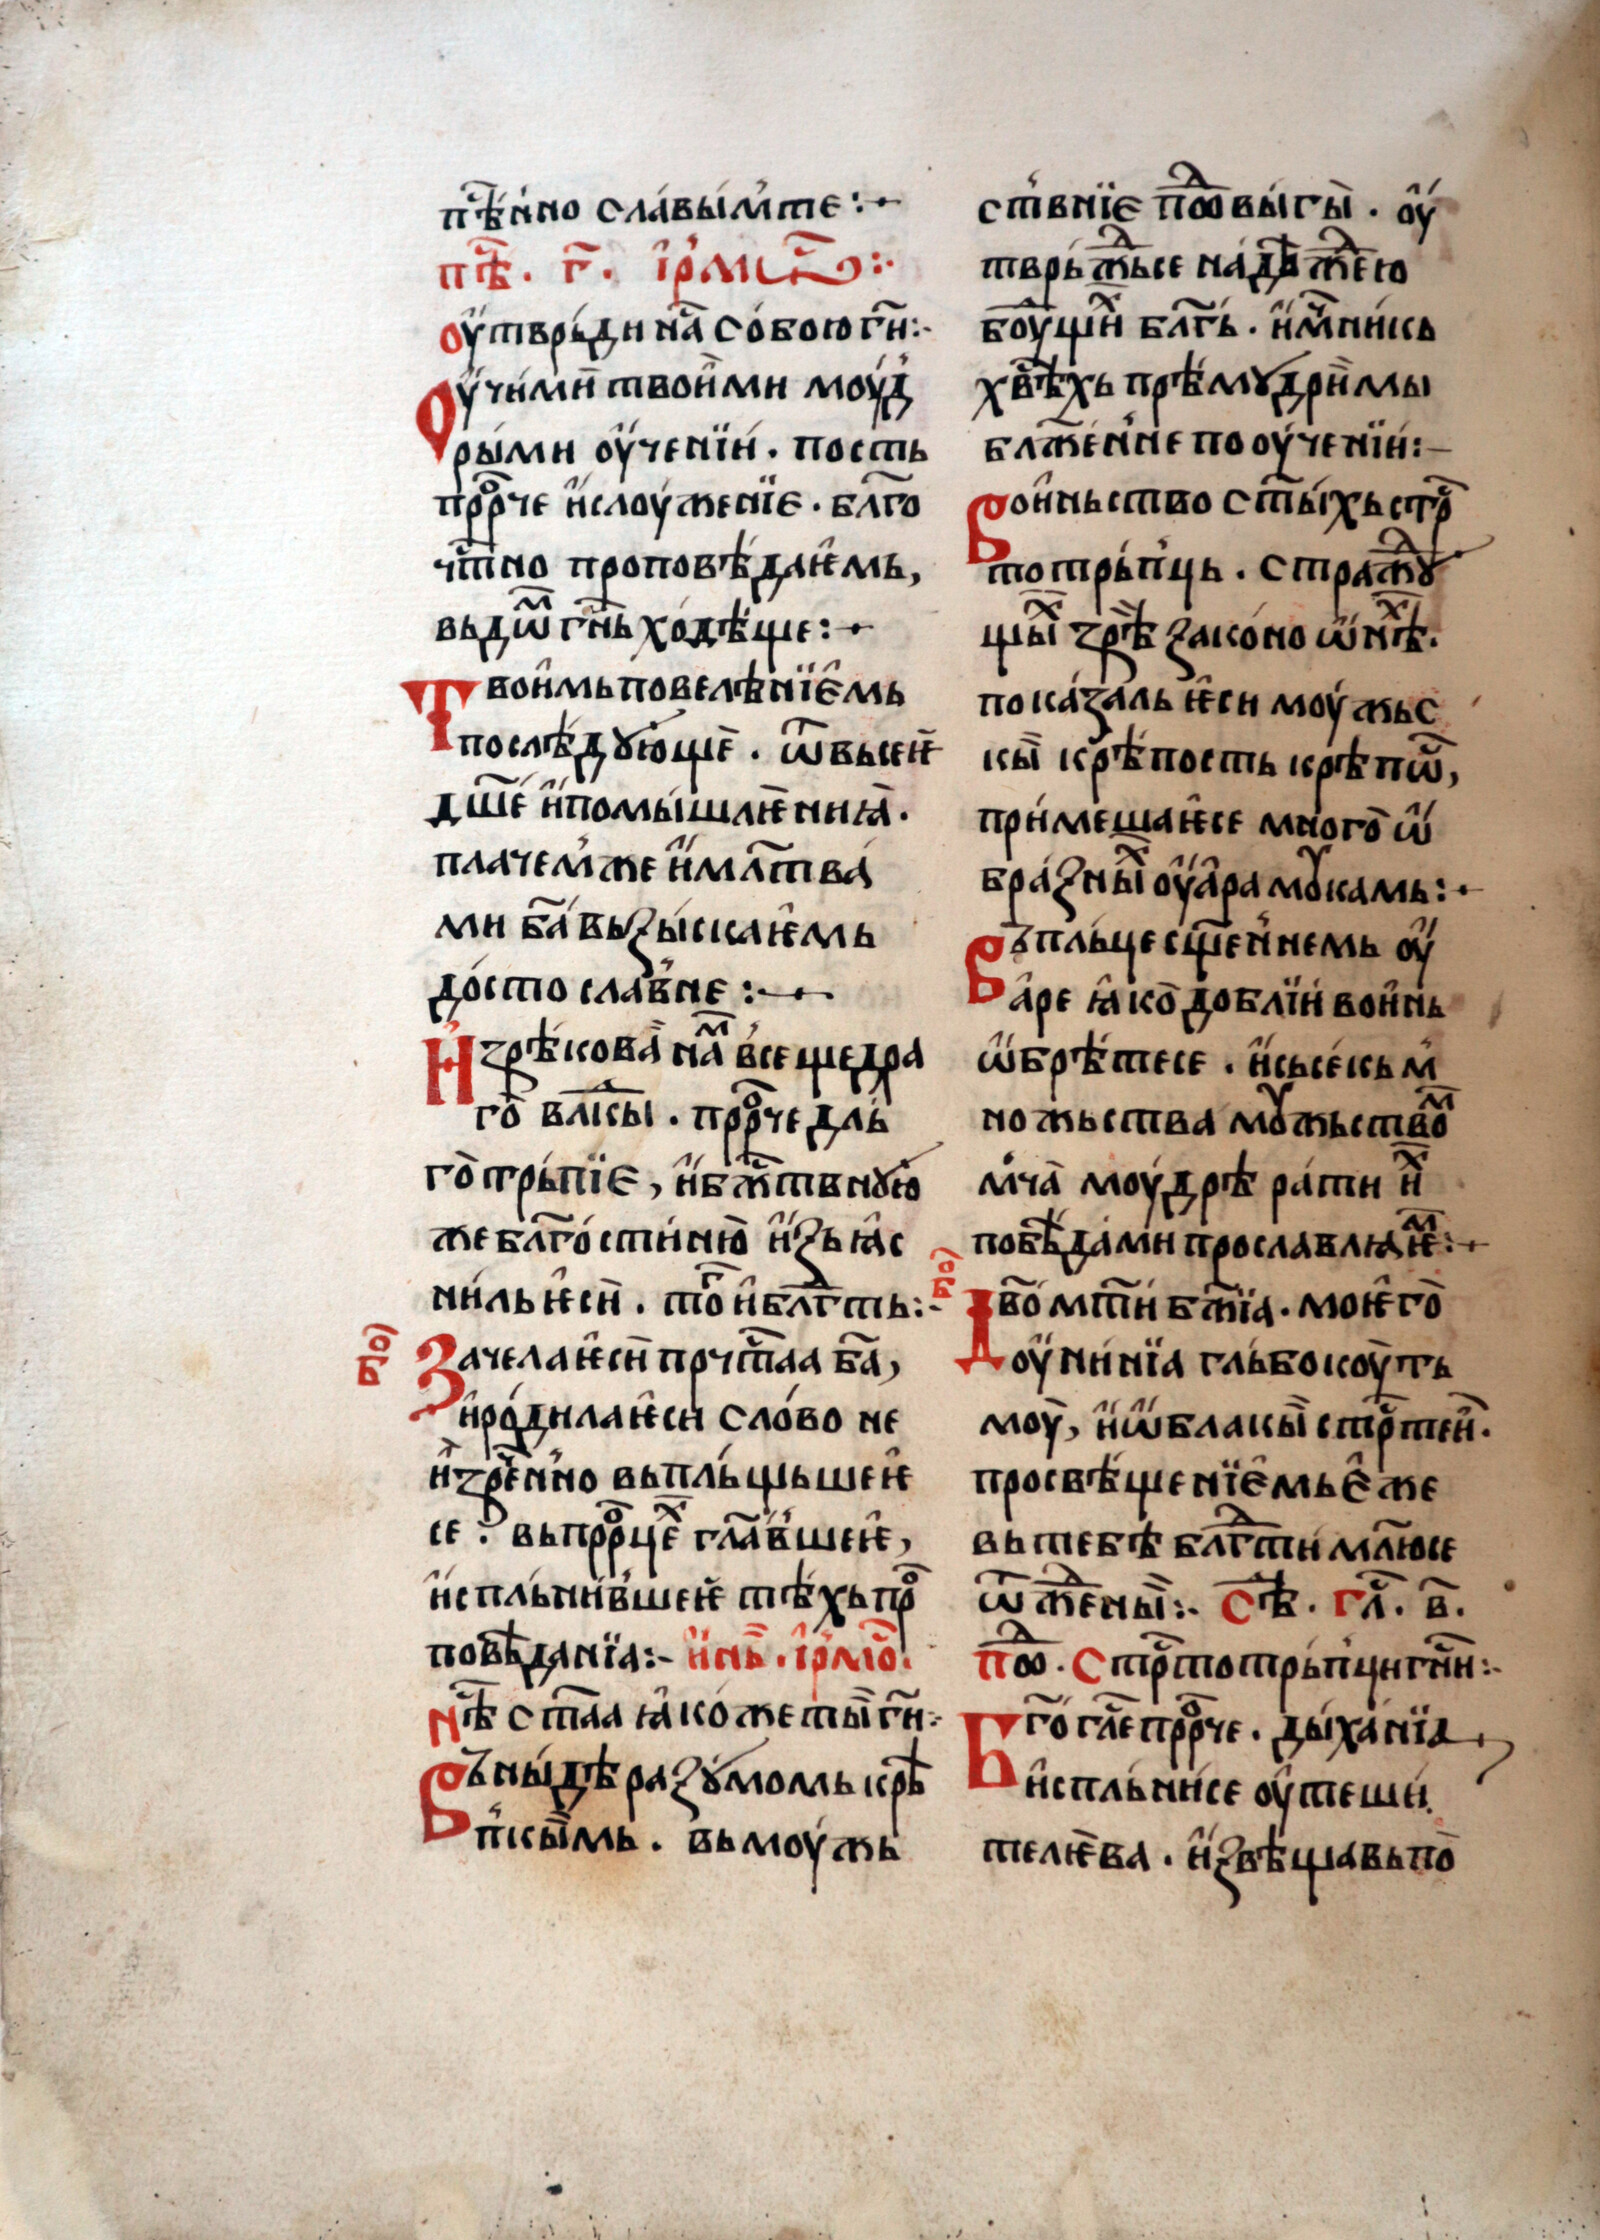 пѣ҃нно славы́мте :·
пѣ҃. г҃. і҆рмⷭ҇ :·
оу҆тврьди на҃ собою гн҃:·
Оу҆чи́мѝ твои҆ми моуд
рыми оу҆ченїи́ . пость
прⷪ҇рче и҆слоуженїе . блг҃о
чт҃но проповѣдаѥ҆мь,
вьдѡⷨ гн҃ь ходѣще :·
Твои҆мь повелѣнїе҆мь
послѣдꙋю҆щѐ . ѿвьсеѥ҆
дш҃е и҆помы́шлѥ҆нниꙗ҆ .
плачем́же и҆мл҃тва
ми ба҃ вьзы́скаѥ҆мь
до́стославне :·
И҆зрѣкова̀ наⷨ все щедра
го̀ влⷣкы . прⷪ҇рче дль
го̀трьпїе, и҆бж҃твнꙋю҆
же блг҃ости́ню̀ и҆зьꙗ҆с
ни́ль ѥ҆сѝ . то҃ и҆блгⷣть :·
бо҃
Зачела ѥ҆сѝ прчⷭ҇таа ба҃,
и҆роди́ла ѥ҆си сло́во не
и҆зре҃нно вьпльщьшеѥ҆
се . вьпрⷪ҇рцеⷯ гла҃вшеѥ҆,
и҆спльни́вшеѥ҆ тѣхь прⷪ҇
повѣданїа :· и҆нь . і҆рмо҃ .
Нѣ҃ ст҃аа ꙗ҆коже ты̀ гн҃ :·
Вьны́дѣ разꙋмомь крѣ
п́кы̀мь . вьмоужь
ст́внїе поⷣвы́гы̀ . оу҆
тврьжⷣьсе надѣжⷣею
боу҃щиⷯ блг҃ь . и҆мⷭ҇никь
хв҃ѣхь прѣмꙋдри҆мы
блж҃е́нне по оу҆ченїи́ :·
Вои҆ньство ст҃ы́хь стрⷭ҇
тотрьпць . стражⷣꙋ
щыⷯ зрѣ̀ закóно ѡ҆ниⷯѣ .
показаль ѥ҆си моужьс
кы̀ крѣпость крѣпѡ҃,
при́мешаѥ҆се много̀ ѡ҆
бра́зныⷯ оу҆а҆ра моукамь :·
Въпльце сщ҃е́ннемь оу҆
а҆ре ꙗ҆ко̀ доблїи́ вои҆нь
ѡ҆брѣтесе . и҆сьсѣкь м
ножьства моужьствоⷨ
м́ча̀ моудрѣ ра́ти иⷯ
побѣдами прославлꙗѥ҆ⷨ :·
бо҃
Дв҃о мт҃и бж҃їа . моѥ҆го̀
оу҆ни́нїа гльбокоу̀ть
моу̀, и҆ѡ҆блакы̀ стрⷭ҇теи҆ .
просвѣщенїе҆мь е҆же
вьтебѣ блгⷣти мл҃юсе
ѿжⷣены̀ :· Сѣ҃ . гла҃ . в҃ .
поⷣ . Стрⷭ҇тотрьпци гн҃и :·
Бг҃о гл҃е прⷪ҇рче . ды́ханїа
и҆спльни́се оу҆теши́
телѥ҆ва . и҆звѣщавь по̀